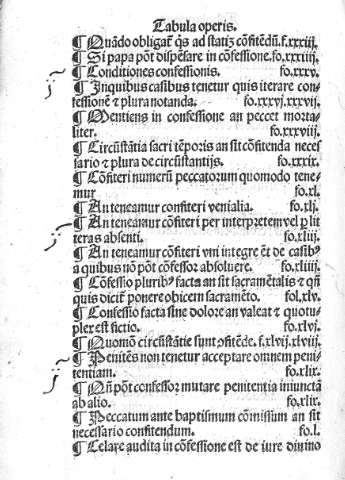 Tabula operis.
¶ Quãdo obligat᷑ q̃s ad statiʒ cõfitendũ.f.xxxiij.
¶ Si papa põt dispẽsare in cõfessione.fo.xxxiiij.
¶ Conditiones confessionis. fo.xxxv.
¶ Inquibus casibus tenetur quis iterare con-
fessionẽ ⁊ plura notanda. fo.xxxvj.xxxvij.
¶ Mentiens in confessione an peccet morta-
liter. fo.xxxviij.
¶ Circũstãtia sacri tẽporis an sit cõfitenda neces
saria ⁊ plura de circũstantijs. fo.xxxix.
¶ Cõfiteri numerũ peccatorum quomodo tene-
mur fo.xl.
¶ An teneamur confiteri venialia. fo.xlj.
¶ An teneamur cõfiteri per interpretem vel ꝑ lit
teras absenti. fo.xliij.
¶ An teneamur cõfiteri vni integre ⁊ de casibꝰ
a quibus nõ põt cõfessor absoluere. fo.xliiij.
¶ Cõfessio pluribꝰ facta an sit sacramẽtalis ⁊ qñ
quis dicit᷑ ponere obicem sacramẽto. fol.xlv.
¶ Confessio facta sine dolore an valeat ⁊ quotu-
plex est fictio. fo.xlvj.
¶ Quomõ circũstãtie sunt ↄfitẽde. f.xlvij.xlviij.
¶ Penitẽs non tenetur acceptare omnem peni-
tentiam. fo.xlix.
¶ Qñ põt confessor mutare penitentia iniunctã
ab alio. fo.xlix.
¶ Peccatum ante baptismum cõmissum an sit
necessario confitendum. fo.l.
¶ Celare audita in cõfessione est de iure diuino